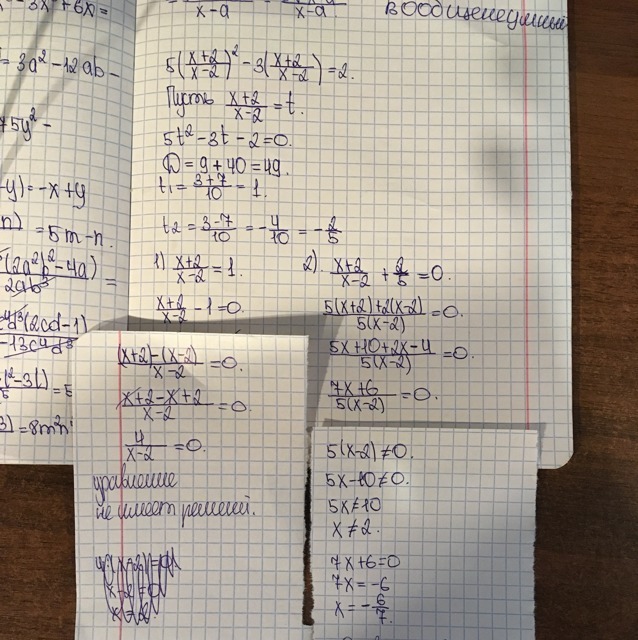 -3x²+6x=
x-a
x-a
= 3a²-12ab-
+5y²-
-y)=-x+y
n) =5m-n.
(2a²b²-4a) =
2ab³
d³(2cd-1)
-13c⁴d³
=8m²n
5((x+2)/(x-2))²-3((x+2)/(x-2))=2.
Пусть (x+2)/(x-2)=t.
5t²-3t-2=0.
D=9+40=49.
t₁=(3+7)/10=1.
t₂=(3-7)/10=-4/10=-2/5
1) (x+2)/(x-2)=1.
(x+2)/(x-2)-1=0.
((x+2)-(x-2))/(x-2)=0.
(x+2-x+2)/(x-2)=0.
4/(x-2)=0.
уравнение
не имеет решений.
2). (x+2)/(x-2)+2/5=0.
(5(x+2)+2(x-2))/(5(x-2))=0.
(5x+10+2x-4)/(5(x-2))=0.
(7x+6)/(5(x-2))=0.
5(x-2)≠0.
5x-10≠0.
5x≠10
x≠2.
7x+6=0
7x=-6
x=-6/7.